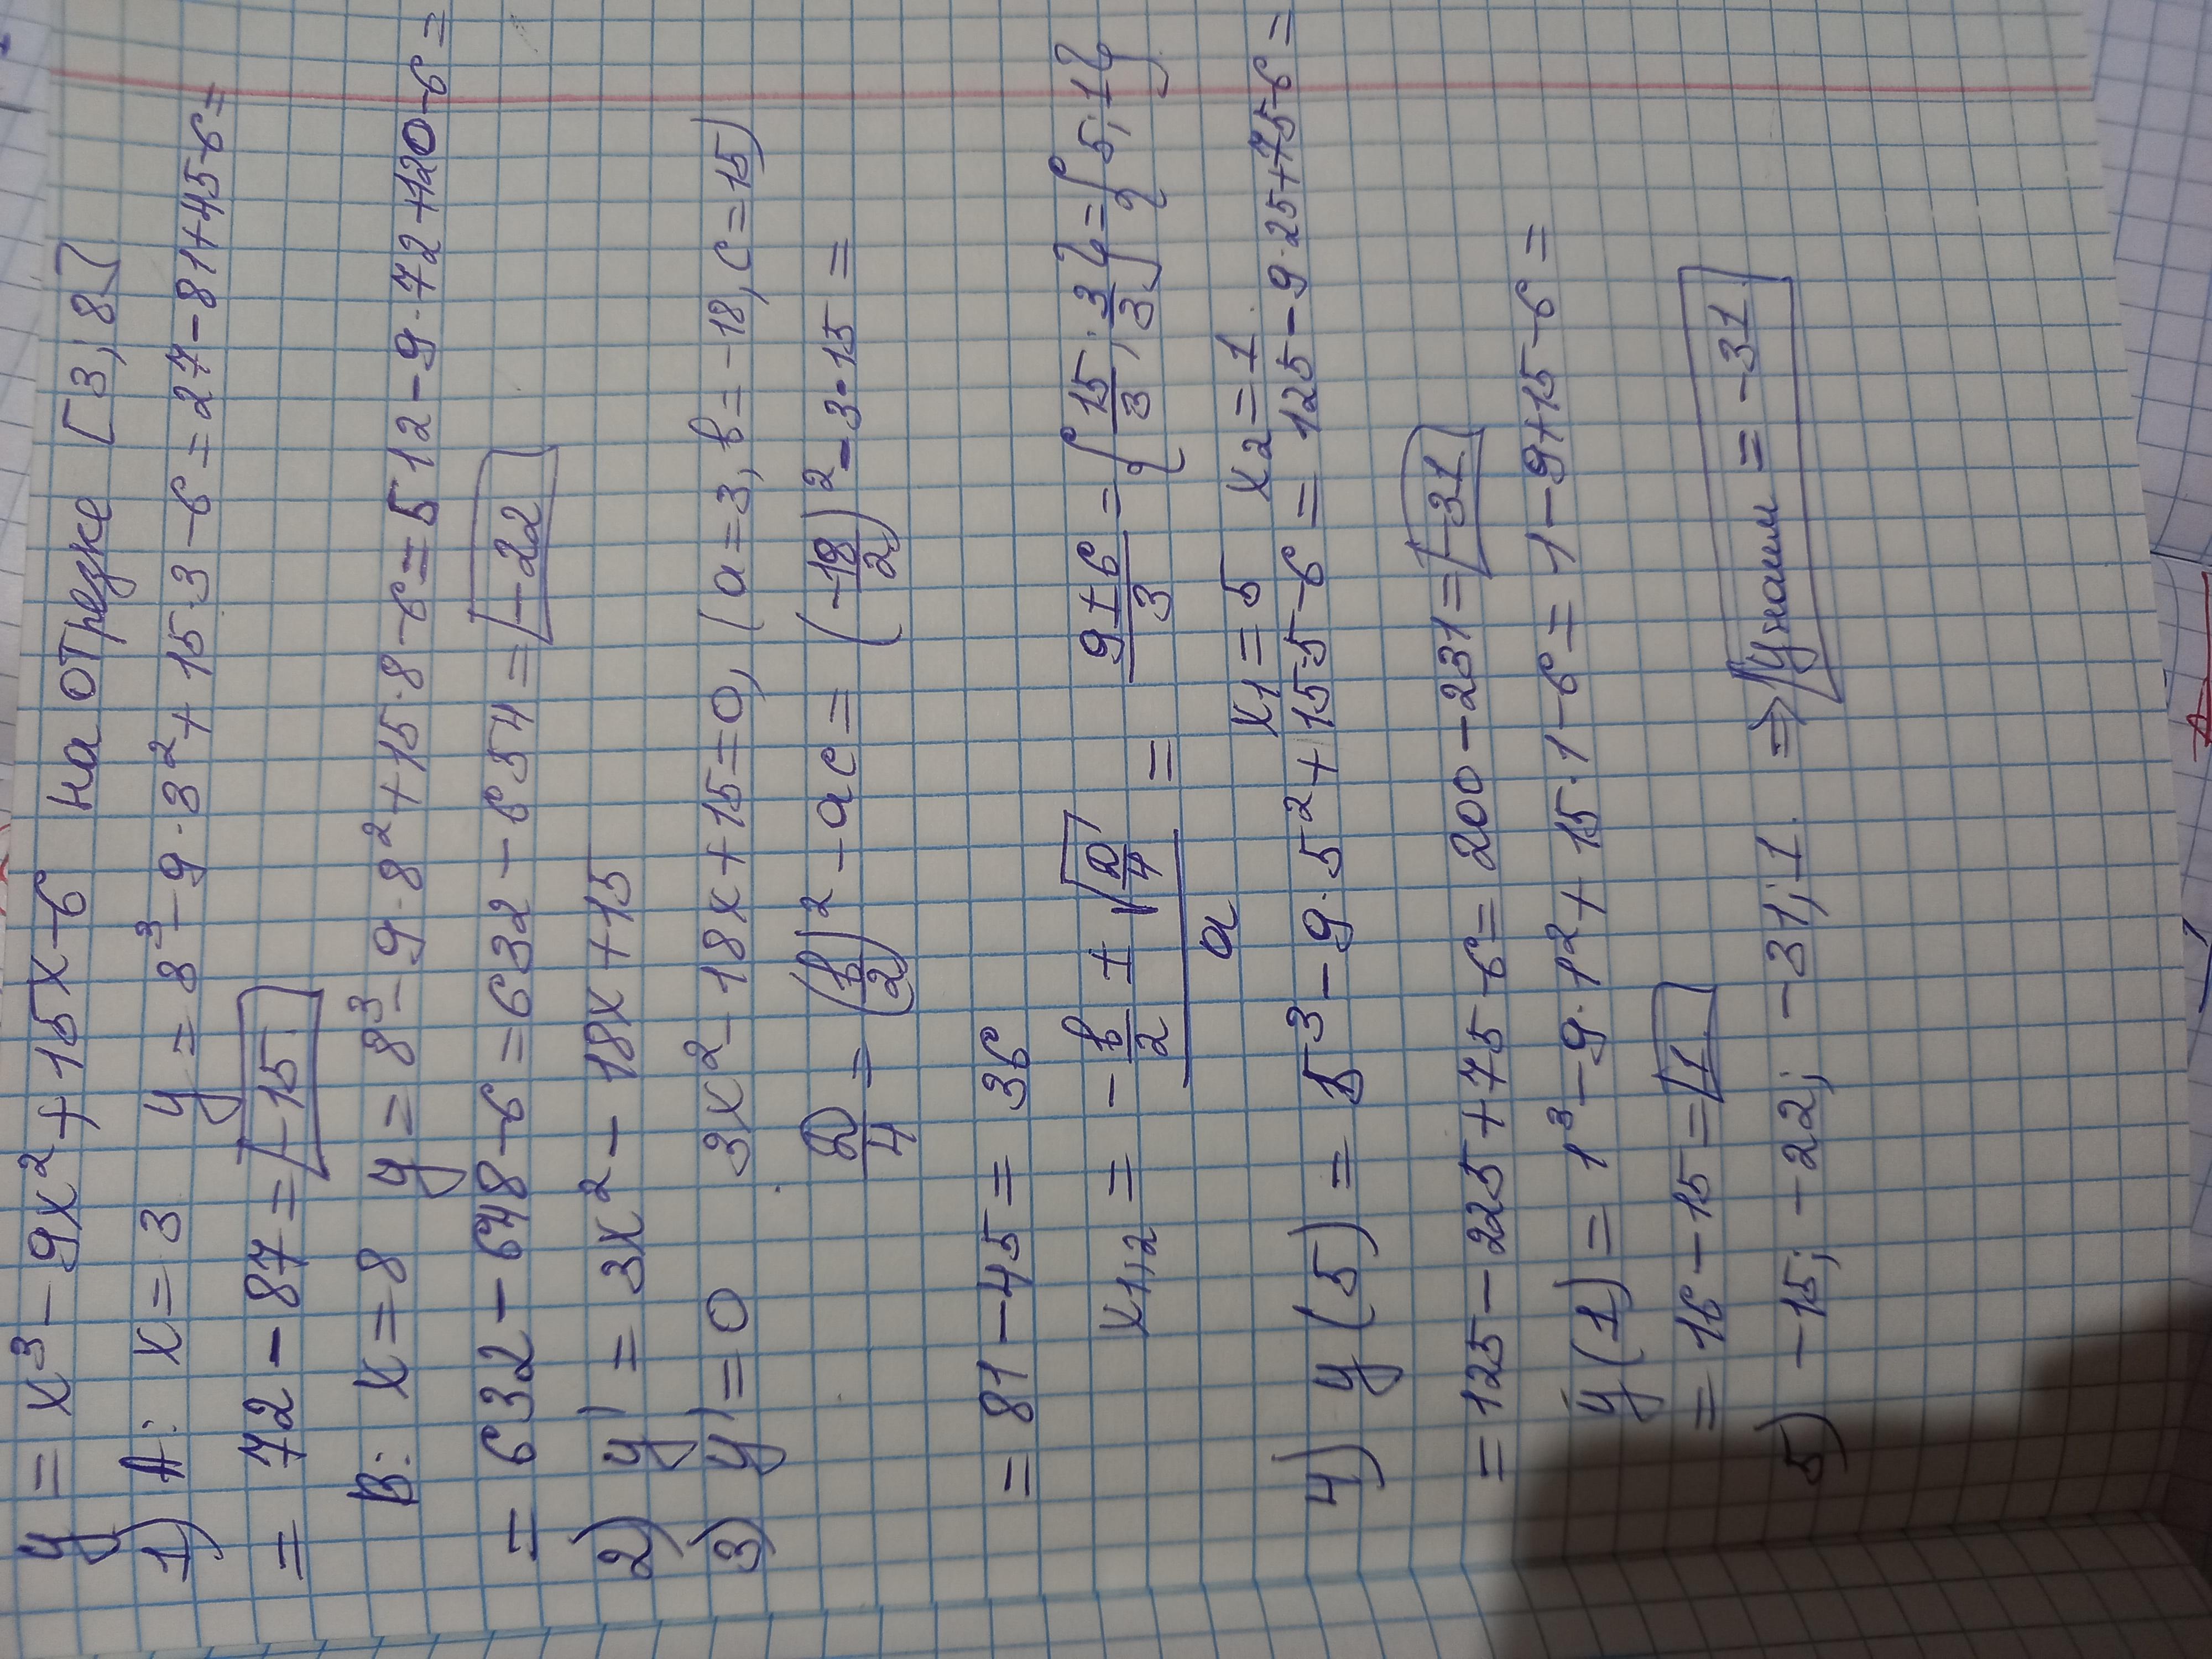 y = x³ - 9x² + 15x - 6 на отрезке [3; 8]
1) A: x = 3 y = 3³ - 9·3² + 15·3 - 6 = 27 - 81 + 45 - 6 =
= 72 - 87 = -15
B: x = 8 y = 8³ - 9·8² + 15·8 - 6 = 512 - 9·72 + 120 - 6 =
= 632 - 648 - 6 = 632 - 654 = -22
2) y' = 3x² - 18x + 15
3) y' = 0 3x² - 18x + 15 = 0, (a = 3, b = -18, c = 15)
D/4 = (b/2)² - ac = (-18/2)² - 3·15 =
= 81 - 45 = 36
x1,2 = (-b/2 ± √(D/4))/a = (9 ± 6)/3 = {15/3; 3/3} = {5; 1}
x1 = 5 x2 = 1
4) y(5) = 5³ - 9·5² + 15·5 - 6 = 125 - 9·25 + 75 - 6 =
= 125 - 225 + 75 - 6 = 200 - 231 = -31
y(1) = 1³ - 9·1² + 15·1 - 6 = 1 - 9 + 15 - 6 =
= 16 - 15 = 1
5) -15; -22; -31; 1. ⇒ yнаим = -31